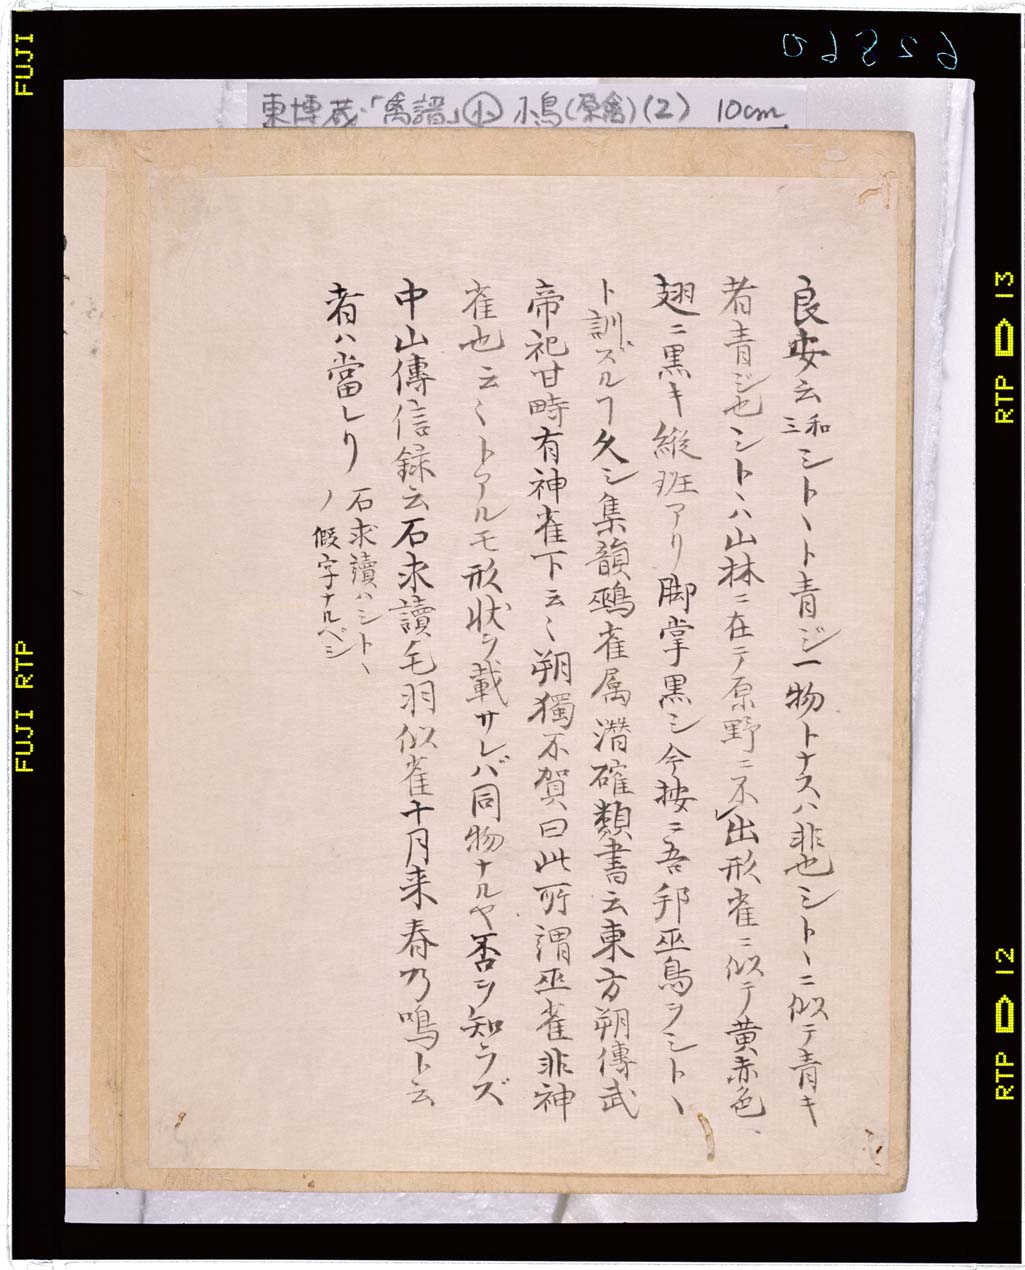 06529
東博蔵「禽譜」小 小鳥(原禽)(2) 10cm
良安云和三シトヽト青ジ一物トナスハ非也シトヽニ似テ青キ
者青ジ也シトヽハ山林ニ在テ原野ニ不出形雀ニ似テ黄赤色
翅ニ黒キ縦班アリ脚掌黒シ今按ニ吾邦巫鳥ヲシトヽ
ト訓ズルヿ久シ集韻鵐雀属潜確類書云東方朔傳武
帝祀甘畤有神雀下云〻朔獨不賀曰此所謂巫雀非神
雀也云〻トアルモ形状ヲ載サレバ同物ナルヤ否ヲ知ラズ
中山傳信録云石求讀毛羽似雀十月来春乃鳴ト云
者ハ當レリ
石求讀ハシトヽ
ノ假字ナルベシ
FUJI
FUJI RTP
RTP 13
RTP 12